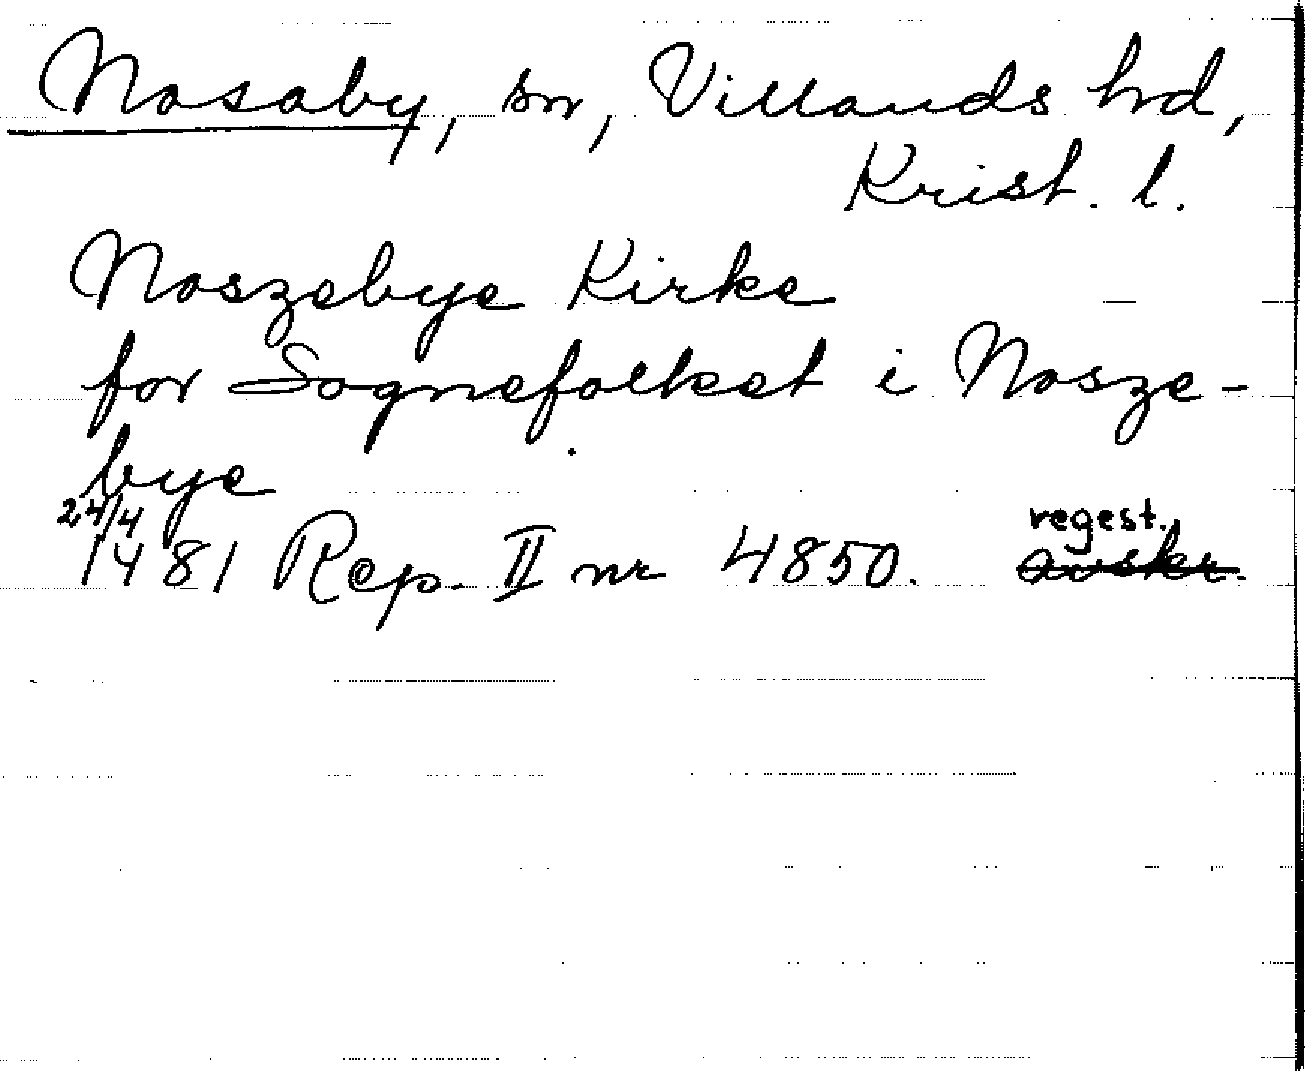 Nosaby, sn, Villands hrd,
Krist. l.
Noszebye Kirke
for Sognefolket i Nosze-
bye
24/4 regest.
1481 Rep. II nr 4850. avskr.